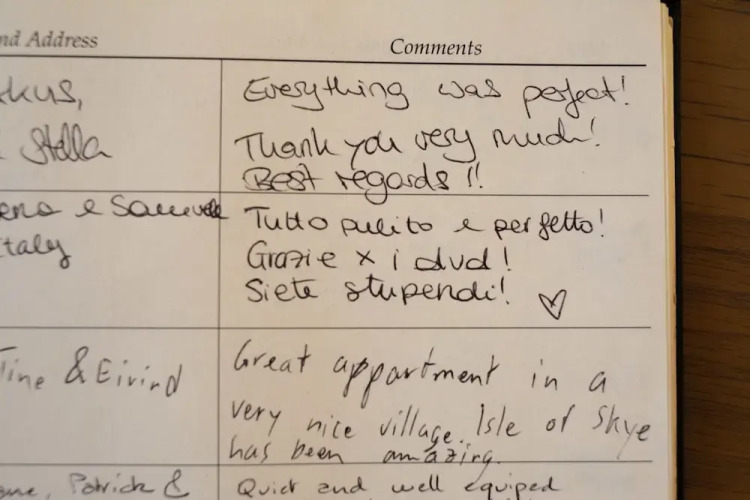 nd Address
Comments
kus,
Stella
Everything was perfect!
Thank you very much!
Best regards !!
ena e Samuele
Italy
Tutto pulito e perfetto!
Grazie x i dvd!
Siete stupendi! ♡
Tine & Eivind
Great appartment in a
very nice village. Isle of Skye
has been amazing.
Patrick &
Quiet and well equiped